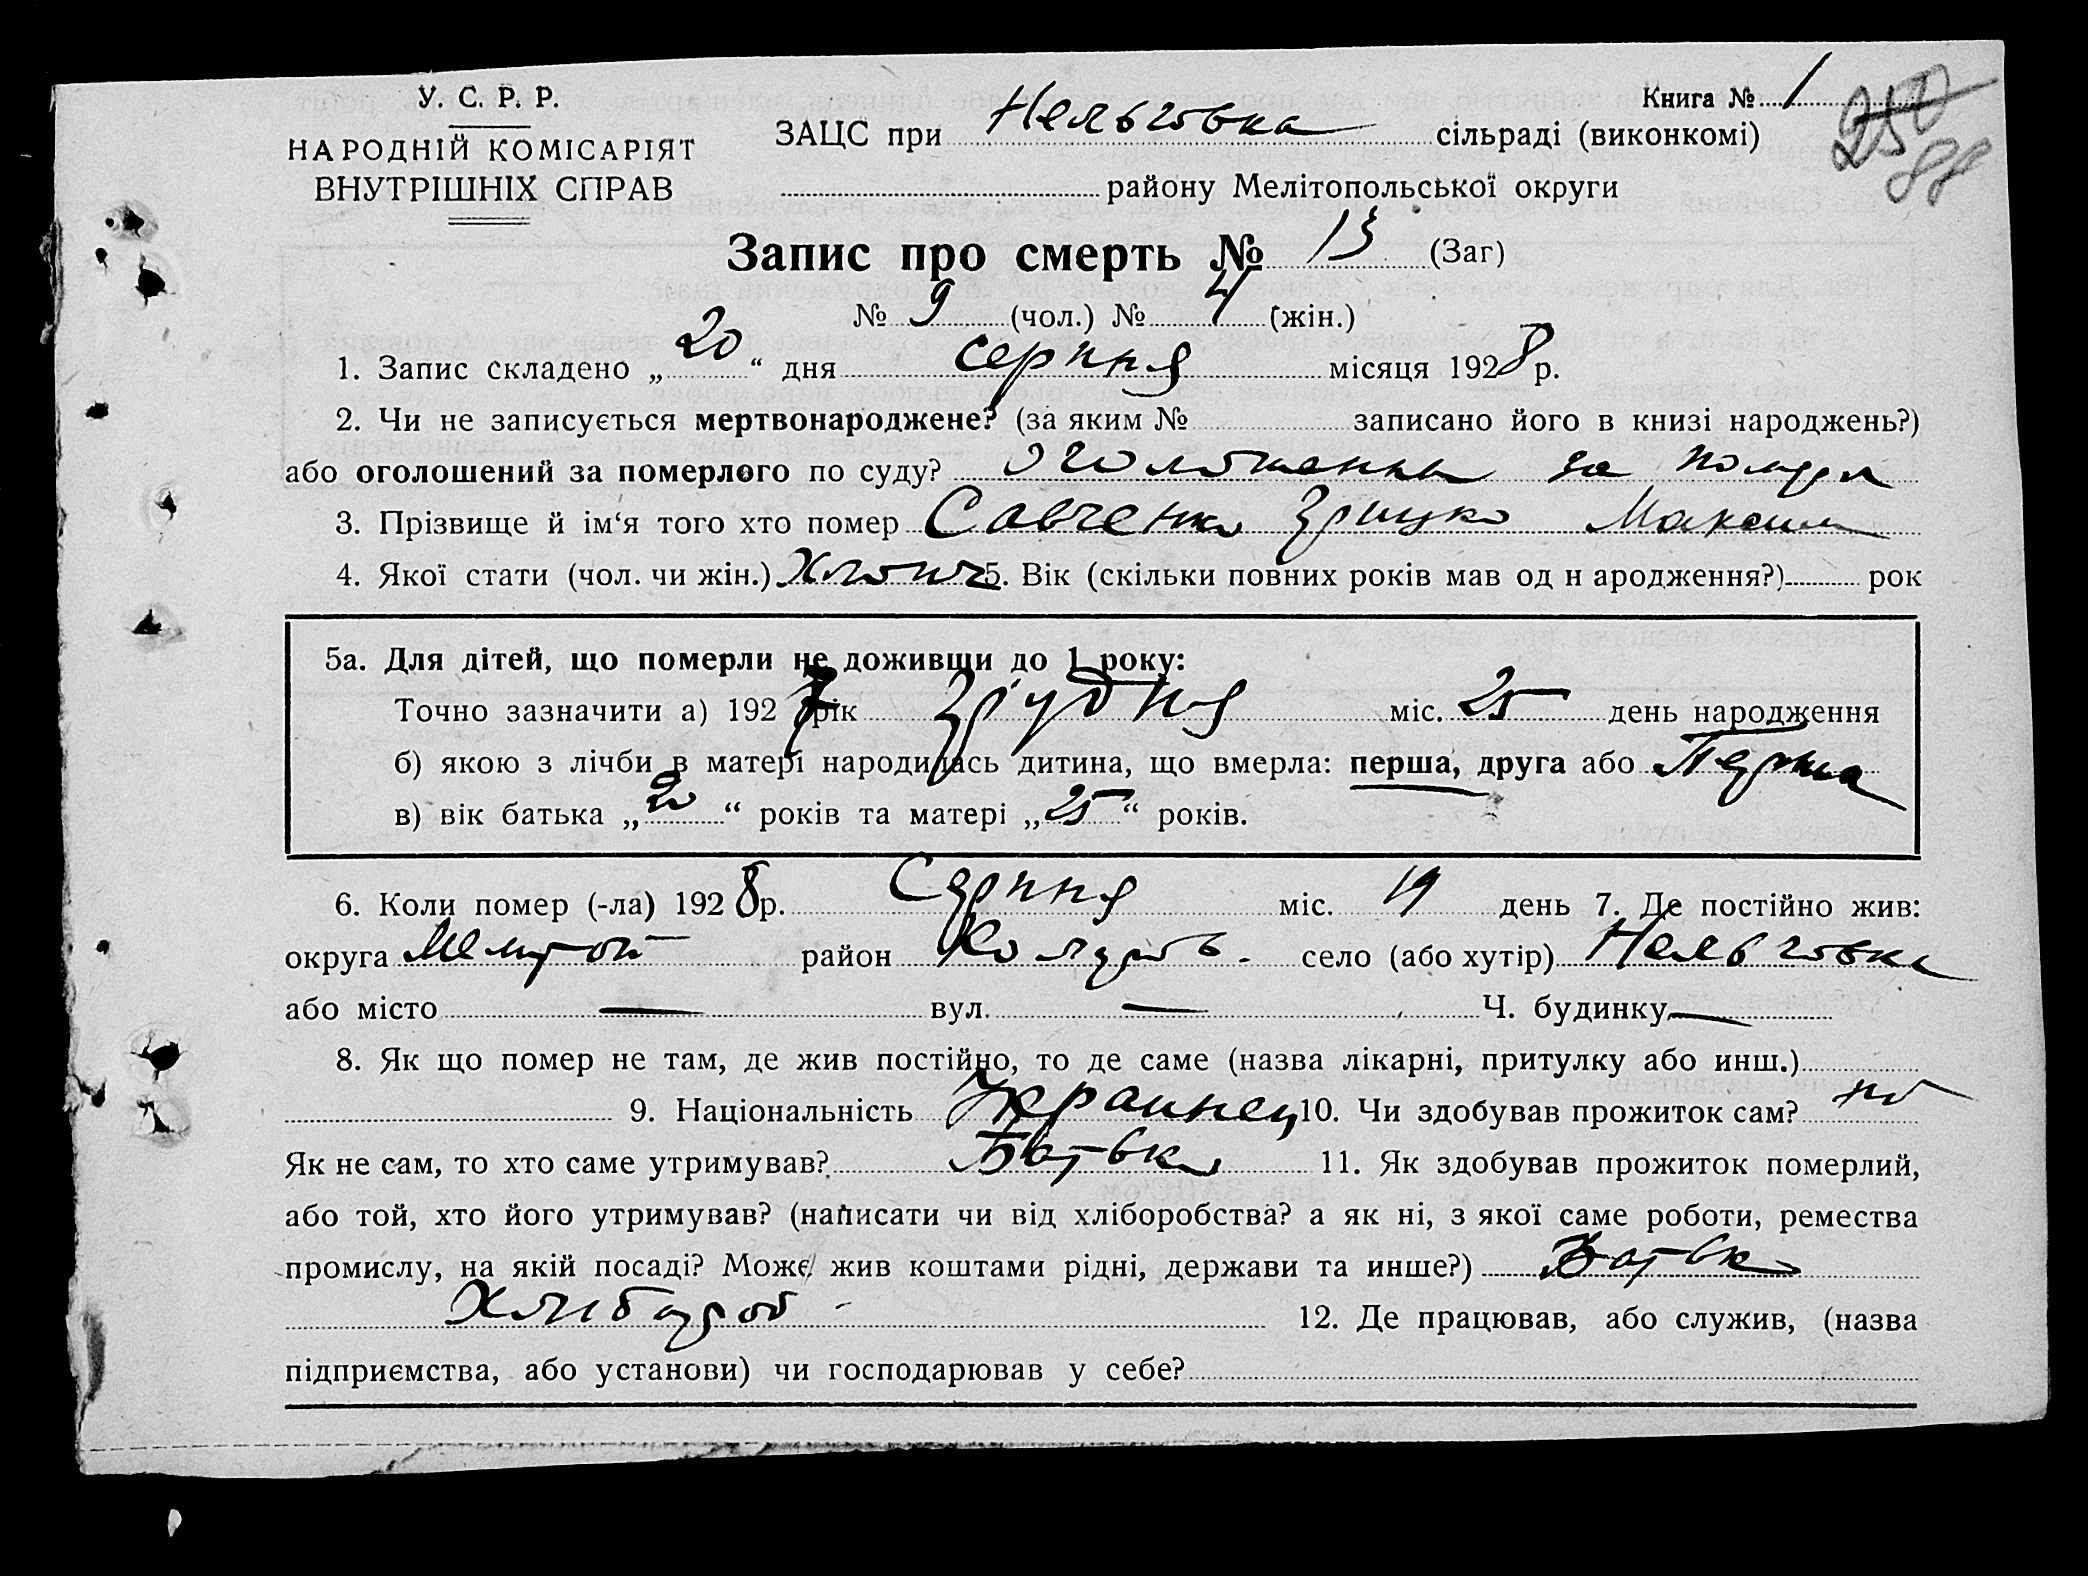 У. С. Р. Р.
НАРОДНІЙ КОМІСАРІЯТ
ВНУТРІШНІХ СПРАВ
Книга № 1
88
ЗАЦС при Нельговка сільраді (виконкомі)
району Мелітопольської округи
Запис про смерть № 13 (Заг)
№ 9 (чол.) № 4 (жін.)
1. Запис складено „ 20 “ дня серпня місяця 1928 р.
2. Чи не записується мертвонароджене? (за яким № записано його в книзі народжень?)
або оголошений за померлого по суду? за
3. Прізвище й ім‘я того хто помер Савченко Грицко Максим
4. Якої стати (чол. чи жін.) Хлопч 5. Вік (скільки повних років мав од н ародження?) рок
5а. Для дітей, що померли не доживши до 1 року:
Точно зазначити а) 1927 рік Грудня міс. 25 день народження
б) якою з лічби в матері народилась дитина, що вмерла: перша, друга або Перша
в) вік батька „ 20 “ років та матері „ 25 “ років.
6. Коли помер (-ла) 1928 р. Серпня міс. 19 день 7. Де постійно жив:
округа Мелітоп район село (або хутір) Нельговка
або місто — вул. — Ч. будинку —
8. Як що помер не там, де жив постійно, то де саме (назва лікарні, притулку або инш.)
9. Національність Украинец 10. Чи здобував прожиток сам? ні
Як не сам, то хто саме утримував? Батько 11. Як здобував прожиток померлий,
або той, хто його утримував? (написати чи від хліборобства? а як ні, з якої саме роботи, ремества
промислу, на якій посаді? Може жив коштами рідні, держави та инше?) Батько
Хлибороб 12. Де працював, або служив, (назва
підприємства, або установи) чи господарював у себе?